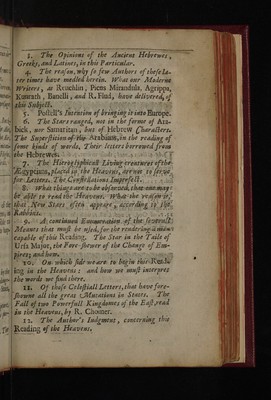 3. The Opinions of the Ancient Hebrewes,
Greeks, and Latines, in this Particular.
4. The reason, why so few Authors of these la-
ter times have medled herein. What our Moderne
Writers, as Reuchlin, Picus Mirandula, Agrippa,
Kunrath, Banelli, and R. Flud, have delivered, of
this Subject.
5. Postell's Intention of bringing it into Europe.
6. The Stars ranged, not in the forme of Ara-
bick, nor Samaritan, but of Hebrew Characters.
The Superstition of the Arabians, in the reading of
some kinds of words. Their letters borrowed from
the Hebrewes.
7. The Hieroglyphical Living creatures of the
Ægyptians, placed in the Heavens, are not to serve
for Letters. The Constellations Imperfect.
8. What things are to be observed, that one may
be able to read the Heavens. What the reason is,
that New Stars often appeare, according to the
Rabbins.
9. A continued Enumeration of the severall
Meanes that must be used, for the rendering a man
capable of this Reading. The Star in the Taile of
Ursa Major, the Fore-shewer of the Change of Em-
pires; and how.
10. On which side we are to begin this Read-
ing in the Heavens: and how we must interpret
the words we find there.
11. Of those Celestiall Letters, that have fore-
shewne all the great Mutations in States. The
Fall of two Powerfull Kingdomes of the East, read
in the Heavens, by R. Chomer.
12. The Author's Judgment, concerning this
Reading of the Heavens.